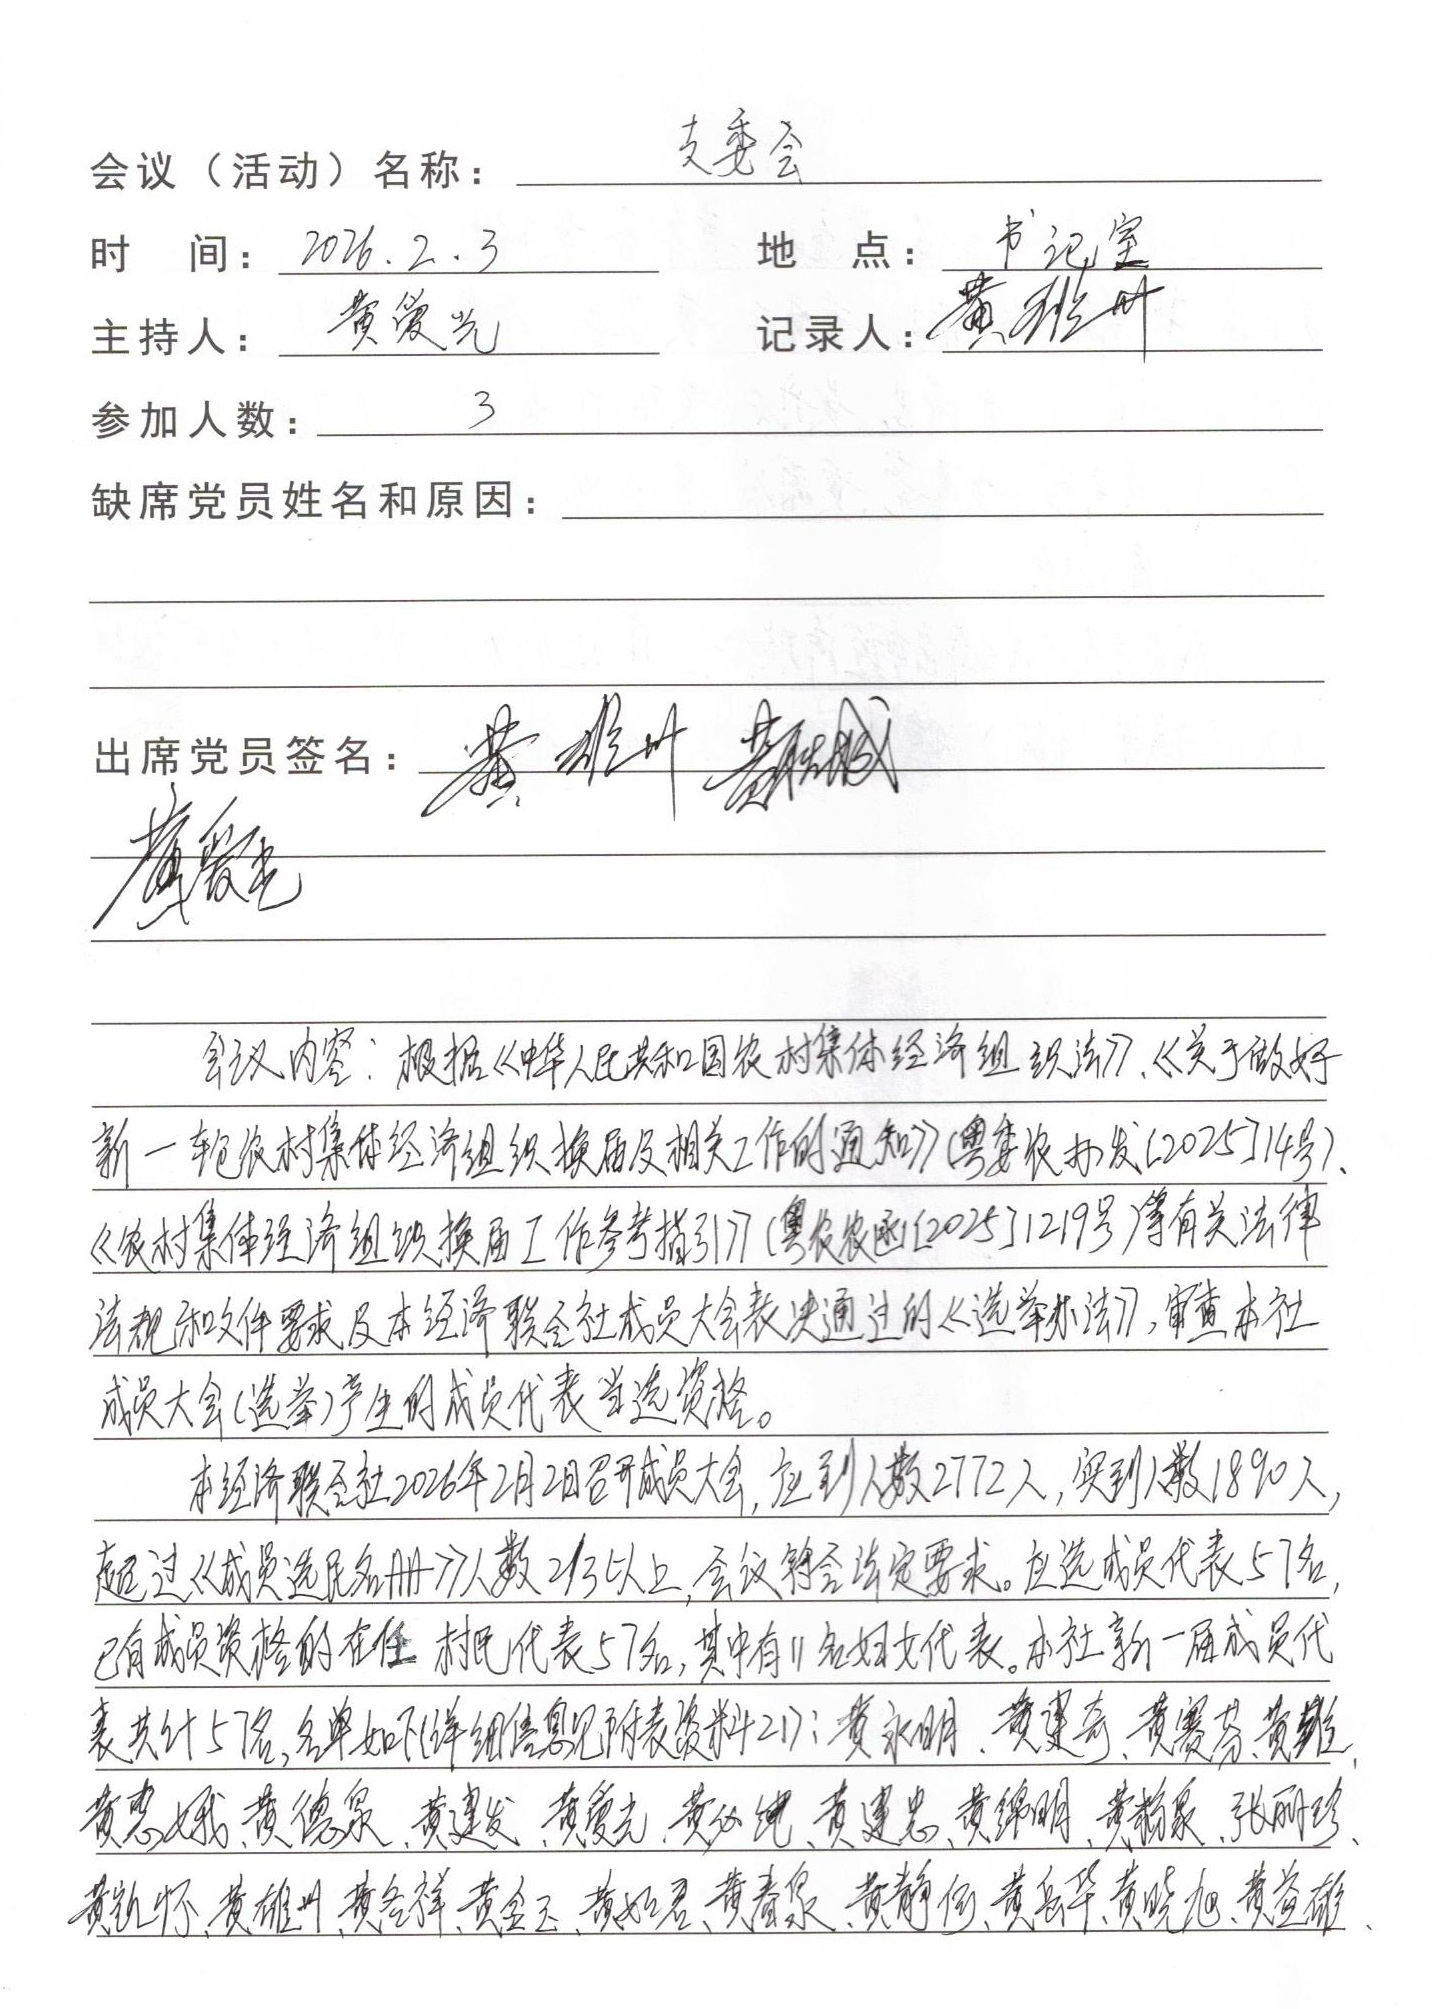 会议（活动）名称： 支委会
时 间： 2026.2.3 地 点： 书记室
主持人： 黄爱光 记录人： 黄雄州
参加人数： 3
缺席党员姓名和原因：
出席党员签名： 黄雄州
黄爱光
会议内容：根据《中华人民共和国农村集体经济组织法》、《关于做好
新一轮农村集体经济组织换届及相关工作的通知》（粤委农办发〔2025〕14号）、
《农村集体经济组织换届工作参考指引》（粤农农函〔2025〕1219号）等有关法律
法规和文件要求及本经济联合社成员大会表决通过的《选举办法》，审查本社
成员大会（选举）产生的成员代表当选资格。
本经济联合社2026年2月2日召开成员大会，应到人数2772人，实到人数1890人，
超过《成员选民名册》人数2/3以上，会议符合法定要求。应选成员代表57名，
已有成员资格的在任村民代表57名，其中有11名妇女代表。本社新一届成员代
表共计57名，名单如下（详细信息见附表资料21）：黄永明、黄建奇、黄赛芬、
黄惠娥、黄德泉、黄建发、黄爱光、黄建忠、黄锦明、张丽珍、
黄凯怀、黄雄州、黄金玉、黄如君、黄春泉、黄静传、黄岳华、黄晓旭、黄益雄、